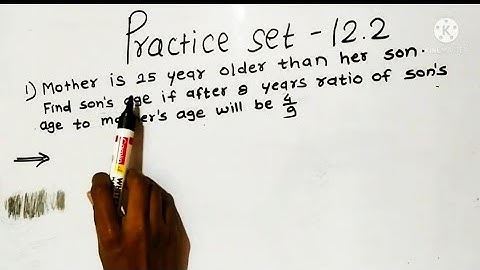 Practice set - 12.2
1) Mother is 25 year older than her son.
Find son's age if after 8 years ratio of son's
age to mother's age will be 4/9
⇒